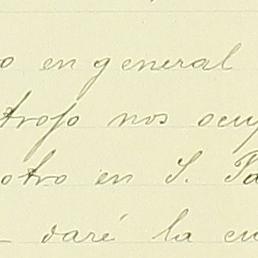 o en general
trofo nos ocup
otro en S. Pa
daré la cu